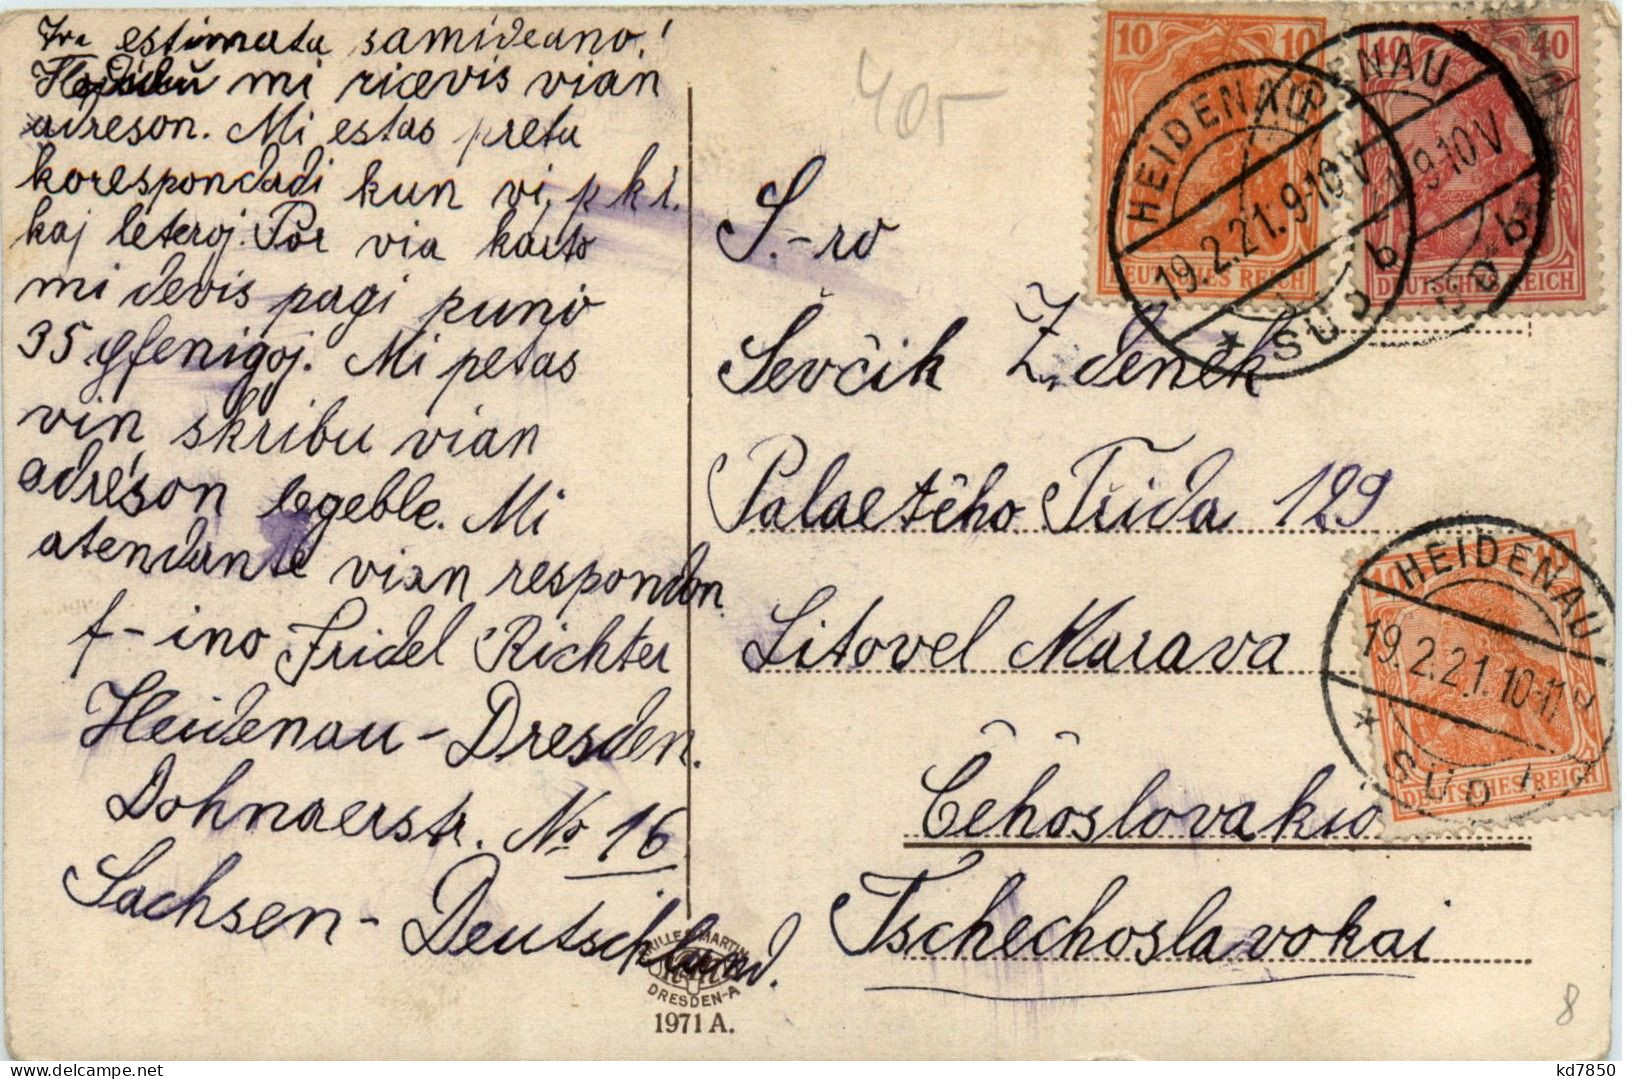 Tre estimata samideano!
Hodiaŭ mi ricevis vian
adreson. Mi estas preta
korespondadi kun vi, p k i.
kaj leteroj. Por via karto
mi devis pagi puno
35 pfenigoj. Mi petas
vin, skribu vian
adreson legeble. Mi
atendante vian respondon.
f-ino Fridel Richter
Heidenau-Dresden.
Dohnaerstr. No 16
Sachsen-Deutschland.
S-ro
Sevčik Zdeněk
Palaetêho Třida 129
Litovel Marava
Ĉêhoslovakio
Tschechoslavokai
10 10
DEUTSCHES REICH
40 40
DEUTSCHES REICH
10
DEUTSCHES REICH
HEIDENAU
19.2.21. 9-10 V
* SÜD b
HEIDENAU
9-10 V
SÜD b
HEIDENAU
19.2.21. 10-11
* SÜD
405
BRILLE MARTIN
DRESDEN-A
1971 A.
8
kd7850